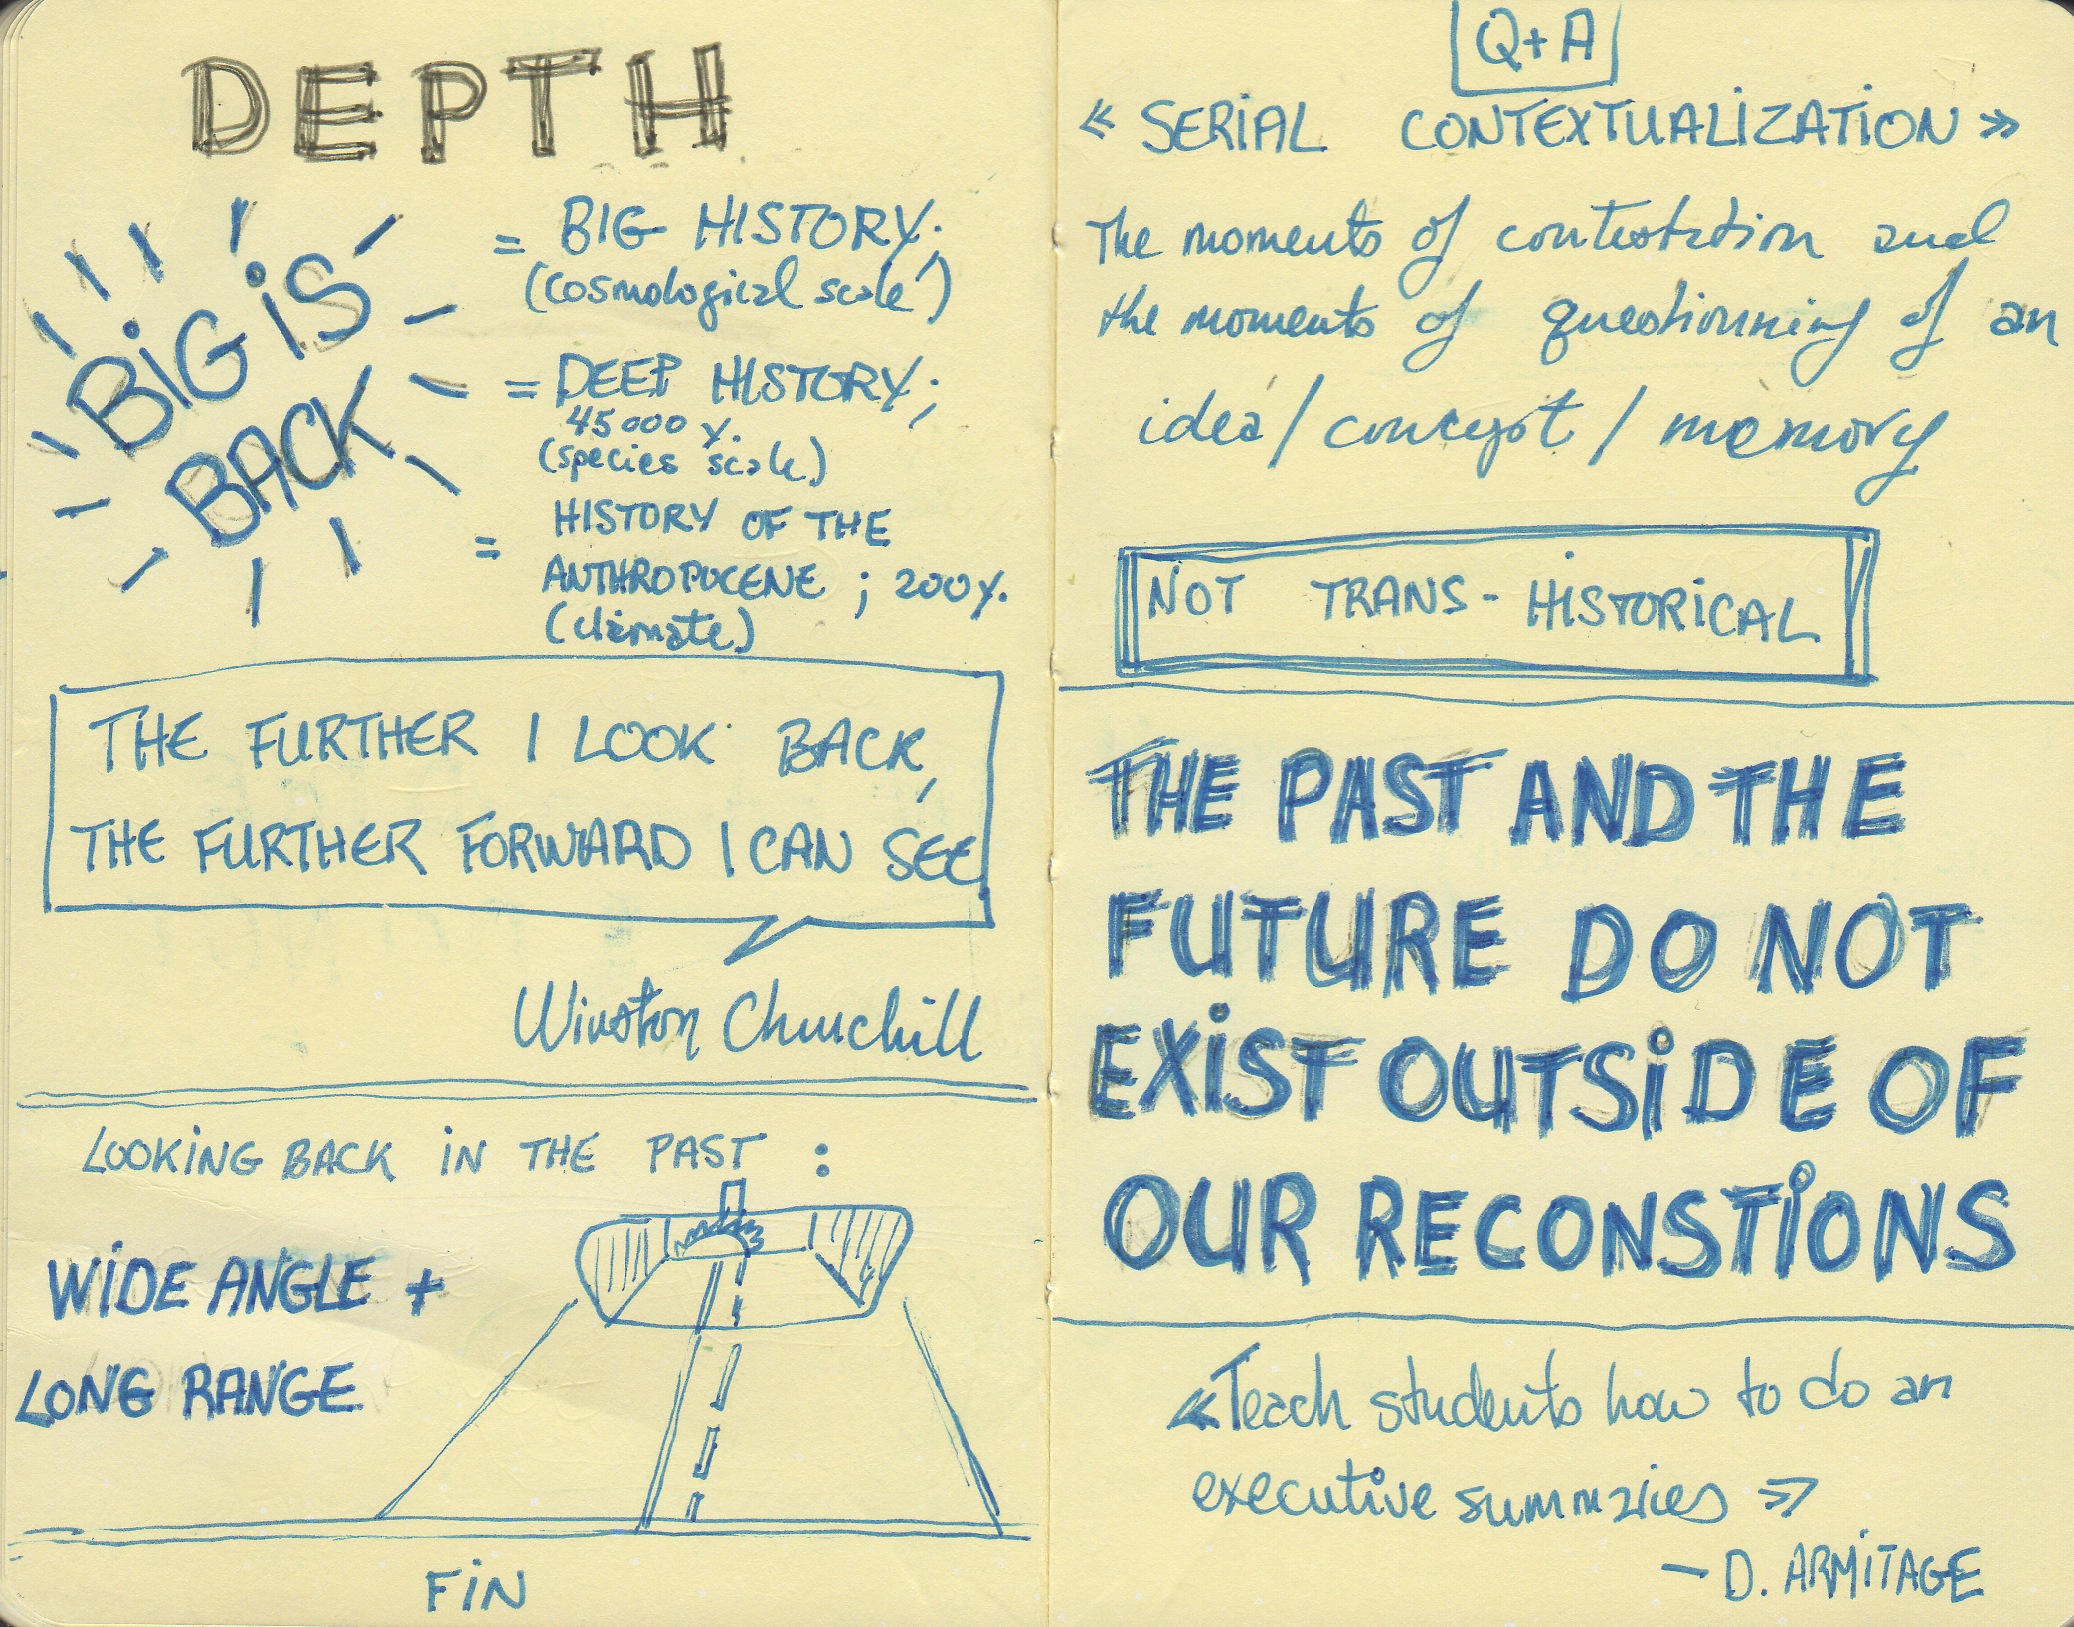 DEPTH
BIG IS
BACK
= BIG HISTORY;
(cosmological scale)
= DEEP HISTORY;
45000 y.
(species scale)
= HISTORY OF THE
ANTHROPOCENE ; 200y.
(climate)
THE FURTHER I LOOK BACK,
THE FURTHER FORWARD I CAN SEE
Winston Churchill
LOOKING BACK IN THE PAST :
WIDE ANGLE +
LONG RANGE
FIN
Q+A
« SERIAL CONTEXTUALIZATION »
The moments of contestation and
the moments of questionning of an
idea / concept / memory
NOT TRANS-HISTORICAL
THE PAST AND THE
FUTURE DO NOT
EXIST OUTSIDE OF
OUR RECONSTIONS
«Teach students how to do an
executive summaries »
- D. ARMITAGE